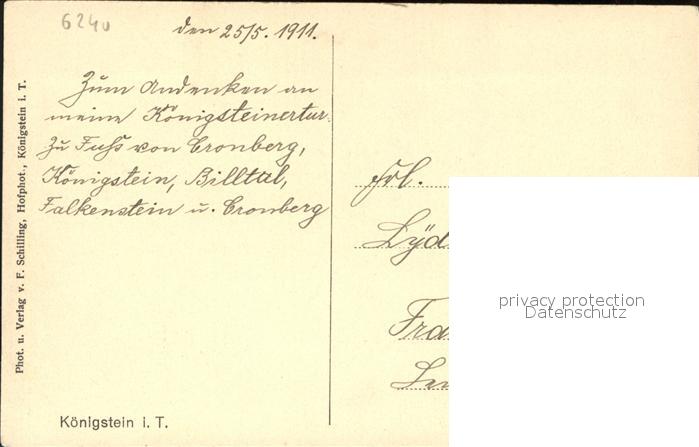 6240
den 25/5. 1911.
Zum Andenken an
meine Königsteinertur
zu Fuss von Cronberg,
Königstein, Billtal,
Falkenstein u. Cronberg
Phot. u. Verlag v. F. Schilling, Hofphot., Königstein i. T.
Königstein i. T.
Frl.
privacy protection
Datenschutz